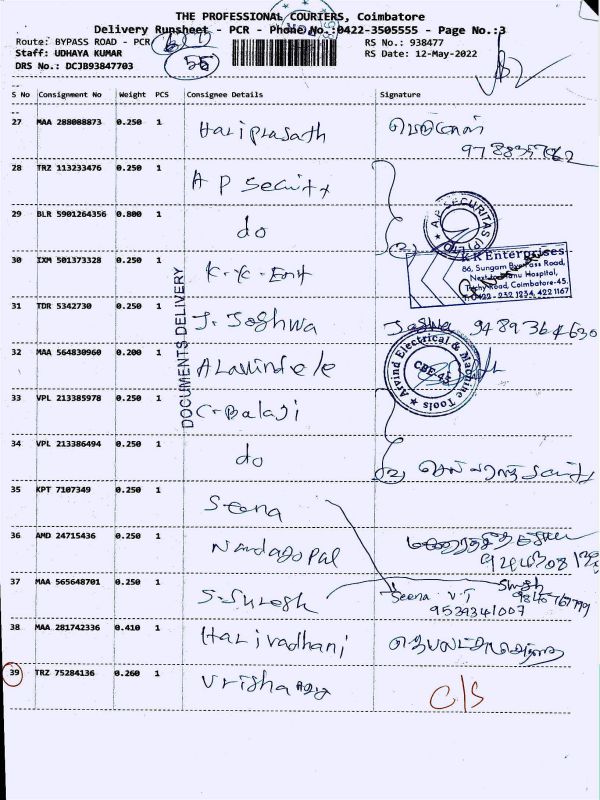 THE PROFESSIONAL COURIERS, Coimbatore
Delivery Runsheet - PCR - Phone No.:0422-3505555 - Page No.:3
Route: BYPASS ROAD - PCR RS No.: 938477
Staff: UDHAYA KUMAR RS Date: 12-May-2022
DRS No.: DCJB93847703
S No Consignment No Weight PCS Consignee Details Signature
27 MAA 288088873 0.250 1 Hariprasath
28 TRZ 113233476 0.250 1 A P Security
29 BLR 5901264356 0.800 1 do
A.P. SECURITAS (P) LTD
30 IXM 501373328 0.250 1 K.K. Ent
K R Enterprises
86, Sungam Byepass Road,
Next to Manu Hospital,
Trichy Road, Coimbatore-45.
T:0422 - 232 1234, 422 1167
DOCUMENTS DELIVERY
31 TDR 5342730 0.250 1 J. Joshwa Joshwa 9489364630
32 MAA 564830960 0.200 1
Arvind Electrical & Machine Tools
CBE-45
33 VPL 213385978 0.250 1 C. Balaji
34 VPL 213386494 0.250 1 do (2)
35 KPT 7107349 0.250 1 Seena
36 AMD 24715436 0.250 1 Nandagopal
37 MAA 565648701 0.250 1 S. Suresh
Seena V.T
9539341007
38 MAA 281742336 0.410 1 Harivadhani
39 TRZ 75284136 0.260 1 Vrisha C/S